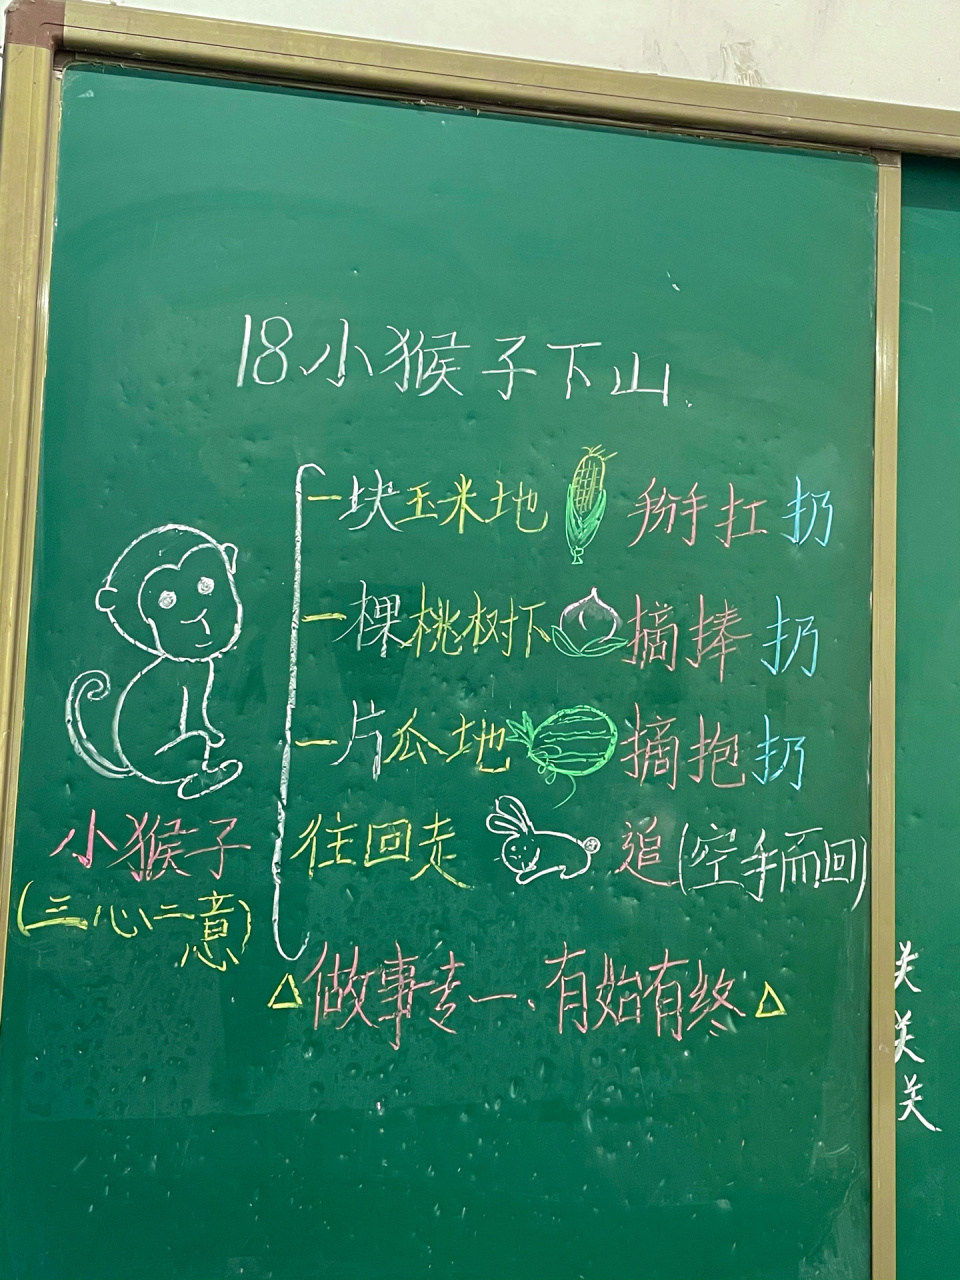 18.小猴子下山.
一块玉米地 掰手扛扔
一棵桃树下 摘捧扔
一片瓜地 摘抱扔
小猴子 往回走 追(空手而回)
(三心二意)
做事专一、有始有终
关
关
关